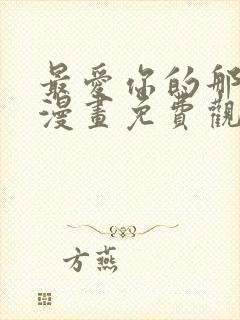 最愛你的那
漫畫免費觀
方燕